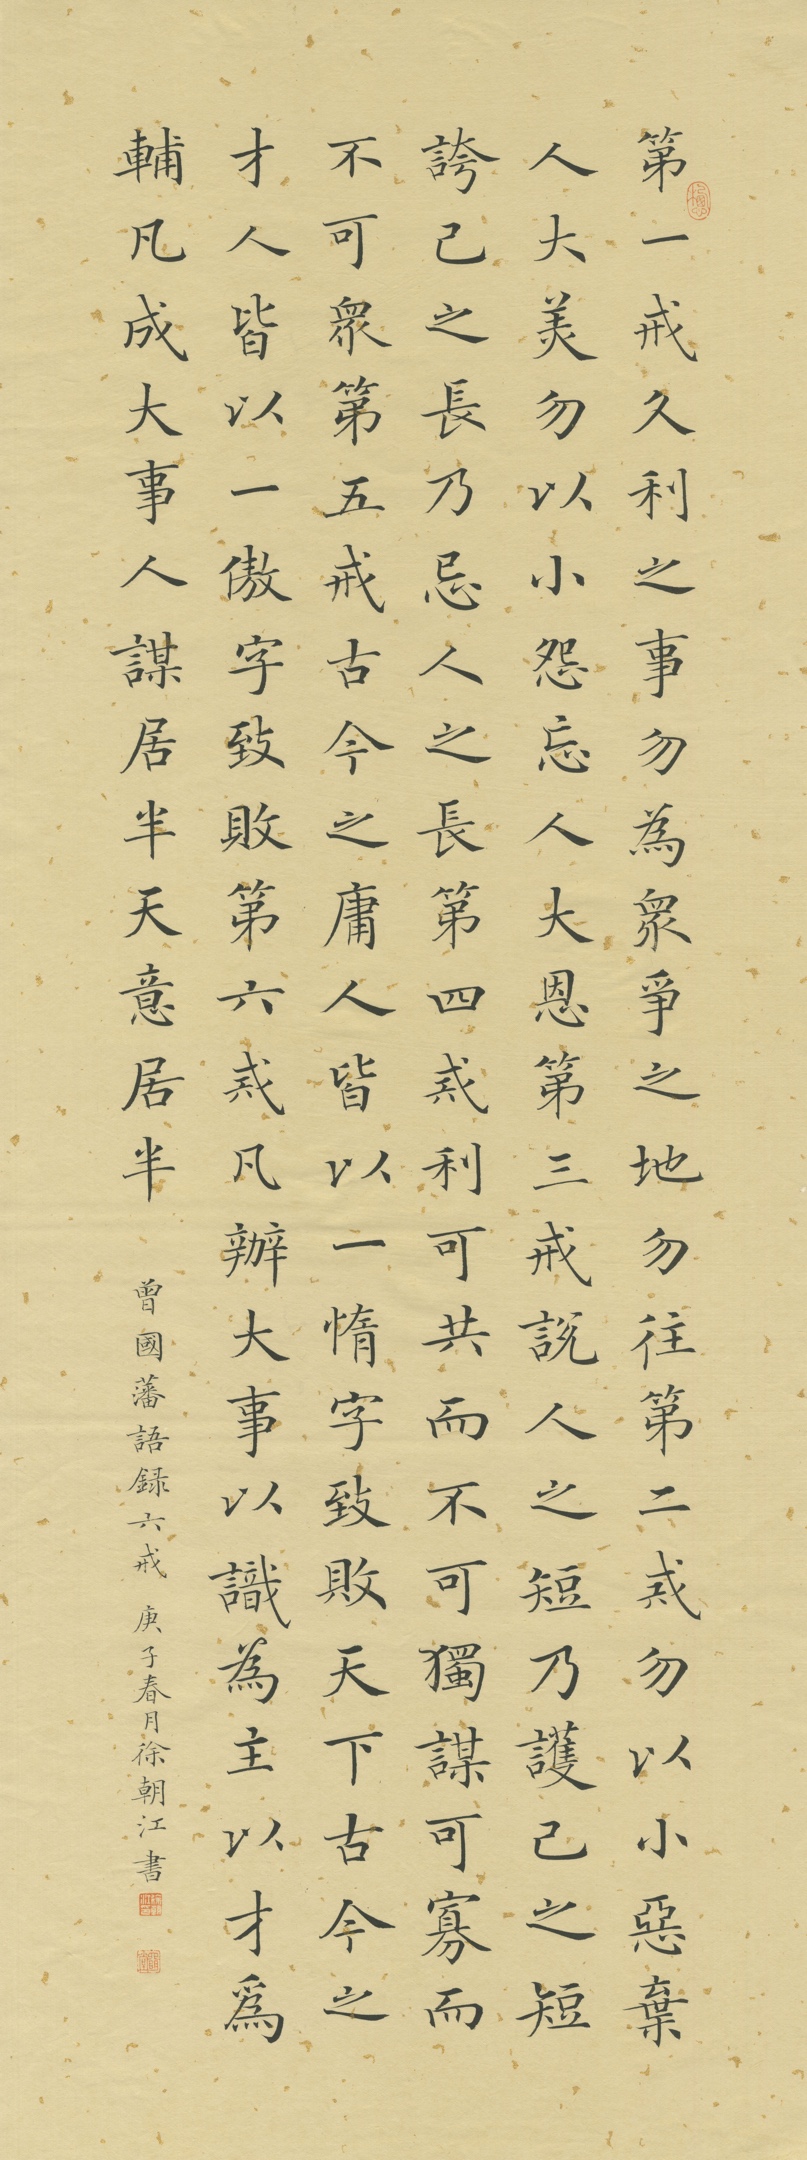 第一戒久利之事勿為衆爭之地勿往第二戒勿以小惡棄
人大美勿以小怨忘人大恩第三戒說人之短乃護己之短
誇己之長乃忌人之長第四戒利可共而不可獨謀可寡而
不可衆第五戒古今之庸人皆以一惰字致敗天下古今之
才人皆以一傲字致敗第六戒凡辦大事以識為主以才爲
輔凡成大事人謀居半天意居半
曾國藩語録六戒 庚子春月徐朝江書